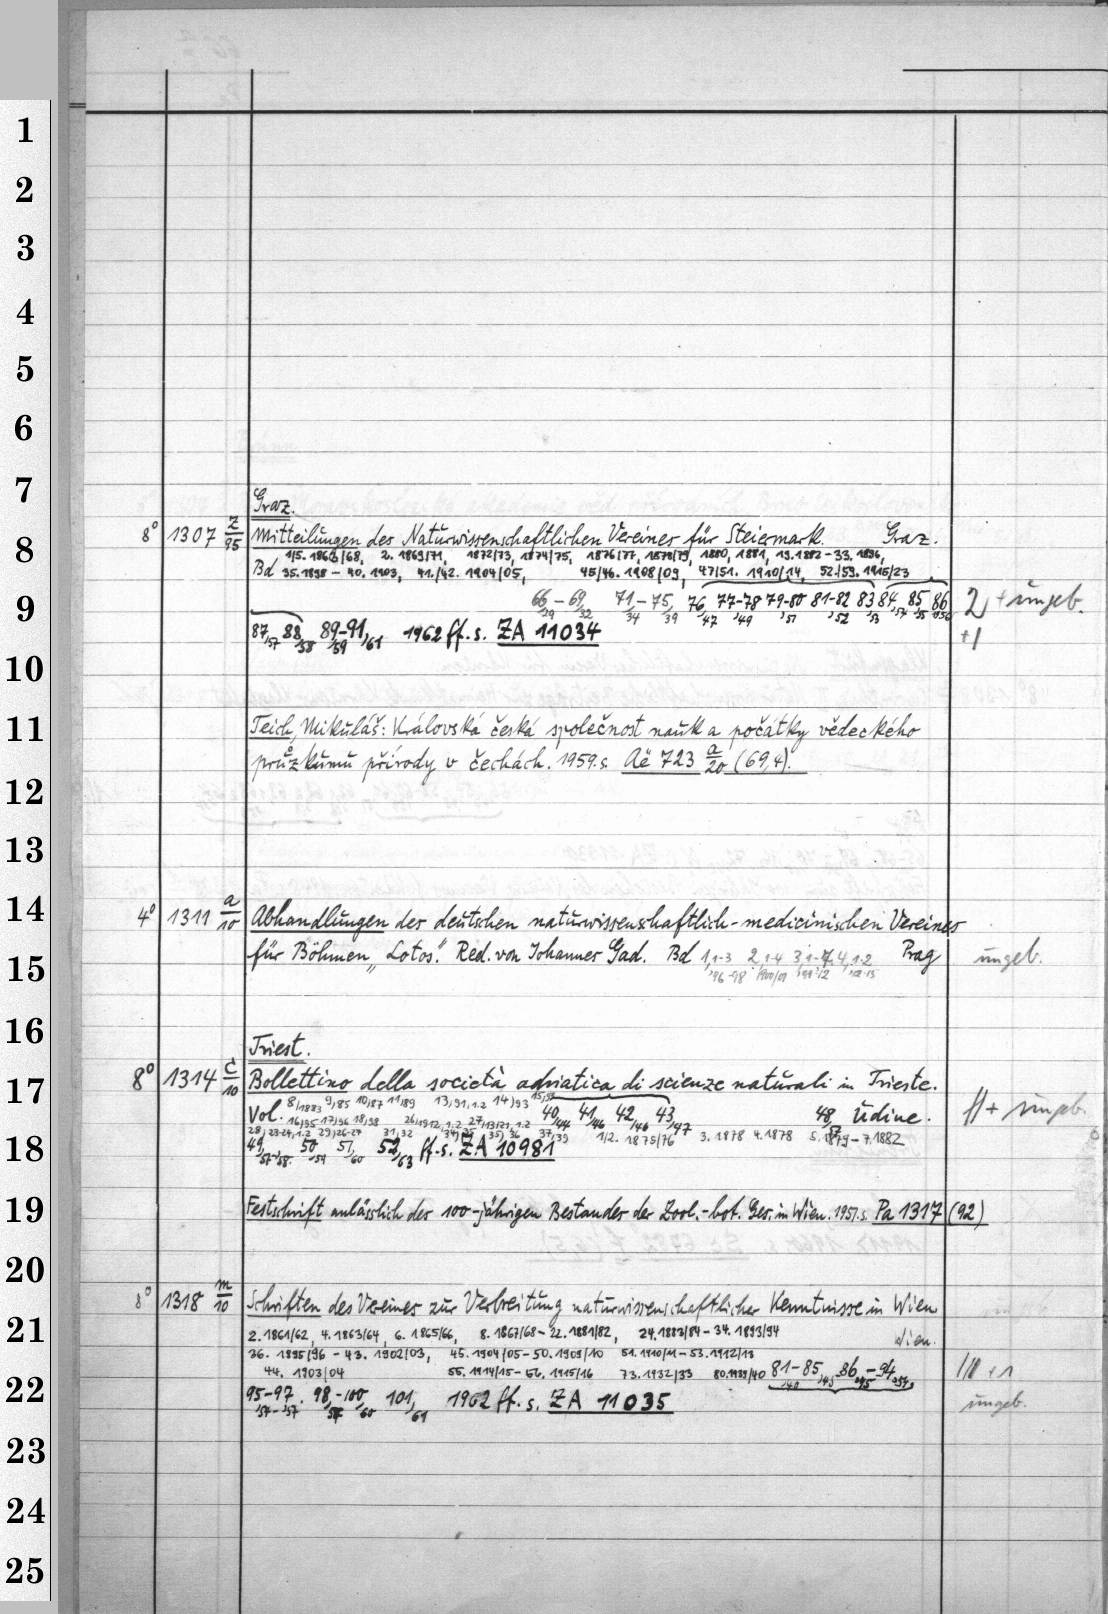 1
2
3
4
5
6
7
Graz.
8
8° 1307 Z/95 Mitteilungen des Naturwissenschaftlichen Vereines für Steiermark. Graz.
1/5. 1863/68, 2. 1869/71, 1872/73, 1874/75, 1876/77, 1878/79, 1880, 1881, 19.1882 - 33. 1896,
Bd 35.1898 - 40. 1903, 41./42. 1904/05, 45/46. 1908/09, 47/51. 1910/14, 52./59. 1915/23
9
66 - 69, 71 - 75, 76, 77-78 79-80 81-82 83 84, 85, 86 2 + ungeb.
29 32 34 39 47 49 51 52 53 54 55
87, 88, 89-91, 1962 ff. s. ZA 11034 +1
57 58 59 61
10
11
Teich, Mikuláš: Královská česká společnost nauk a počátky vědeckého
průzkumu přírody v čechách. 1959. s. Aě 723 a/20 (69,4).
12
13
14
4° 1311 a/10 Abhandlungen des deutschen naturwissenschaftlich-medicinischen Vereines
15
für Böhmen „Lotos." Red. von Johannes Gad. Bd 1,1-3 2,1-4 3,1-4 4,1-2 Prag ungeb.
'96-98 1900/01
16
Triest.
17
8° 1314 c/10 Bollettino della società adriatica di scienze naturali in Trieste.
Vol. 8/1883 9/85 10/87 11/89 13/91,1.2 14/93 40, 41, 42, 43, 48, Udine. + ungeb.
44 46 46 47
1/2. 1875/76 3. 1878 4. 1878 5. 1879 - 7. 1882
18
49, 50, 51, 52, ff. s. ZA 10981
57-58. 59 60 63
19
Festschrift anlässlich des 100-jährigen Bestandes der Zool.-bot. Ges. in Wien. 1951. s. Pa 1317 (92)
20
8° 1318 m/10 Schriften des Vereines zur Verbreitung naturwissenschaftlicher Kenntnisse in Wien
21
2. 1861/62, 4. 1863/64, 6. 1865/66, 8. 1867/68 - 22. 1881/82, 24. 1883/84 - 34. 1893/94 Wien.
36. 1895/96 - 43. 1902/03, 45. 1904/05 - 50. 1909/10 51. 1910/11 - 53. 1912/13
44. 1903/04 55. 1914/15 - 56. 1915/16 73. 1932/33 80. 1939/40 81-85, 86, - 94, +1
22
95-97. 98, -100, 101, 1962 ff. s. ZA 11035 ungeb.
60 61
23
24
25